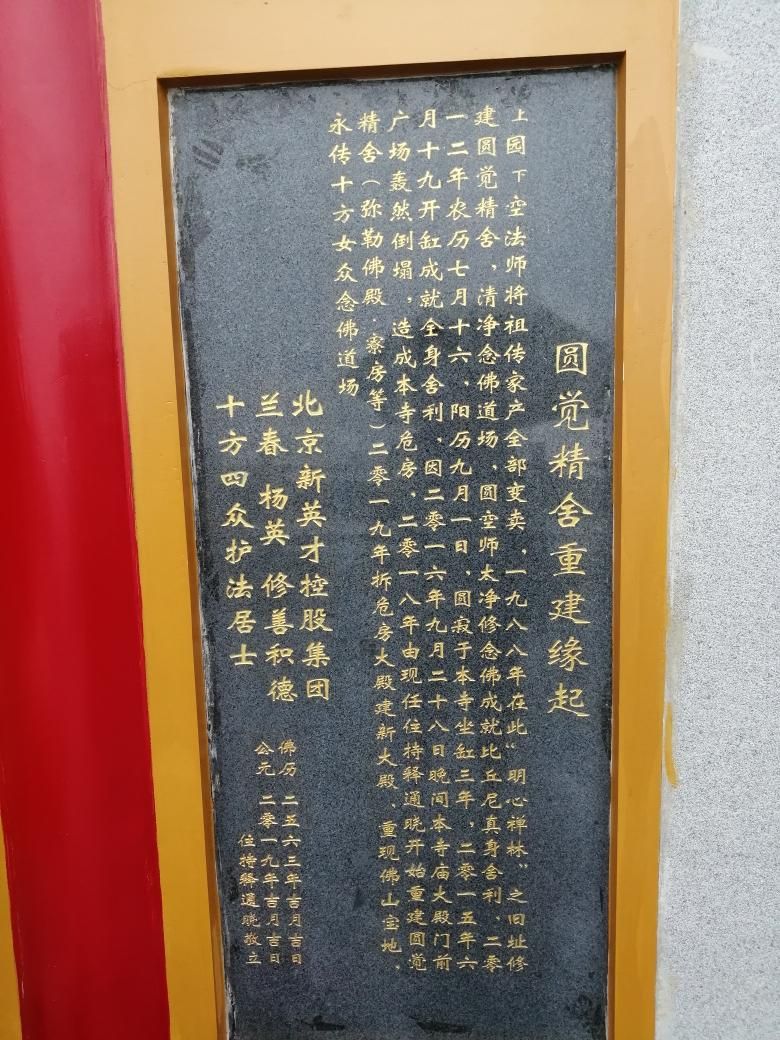 圆觉精舍重建缘起
上园下空法师将祖传家产全部变卖，一九八八年在此“明心禅林”之旧址修
建圆觉精舍，清净念佛道场、圆空师太净修念佛成就比丘尼真身舍利、二零
一二年农历七月十六、阳历九月一日、圆寂于本寺坐缸三年，二零一五年六
月十九开缸成就全身舍利，因二零一六年九月二十八日晚间本寺庙大殿门前
广场轰然倒塌，造成本寺危房、二零一八年由现任住持释通晓开始重建圆觉
精舍（弥勒佛殿．寮房等）二零一九年拆危房大殿建新大殿、重现佛山宝地、
永传十方女众念佛道场
北京新英才控股集团
兰春 杨英 修善积德
十方四众护法居士
佛历 二五六三年吉月吉日
公元 二零一九年吉月吉日
住持释通晓敬立